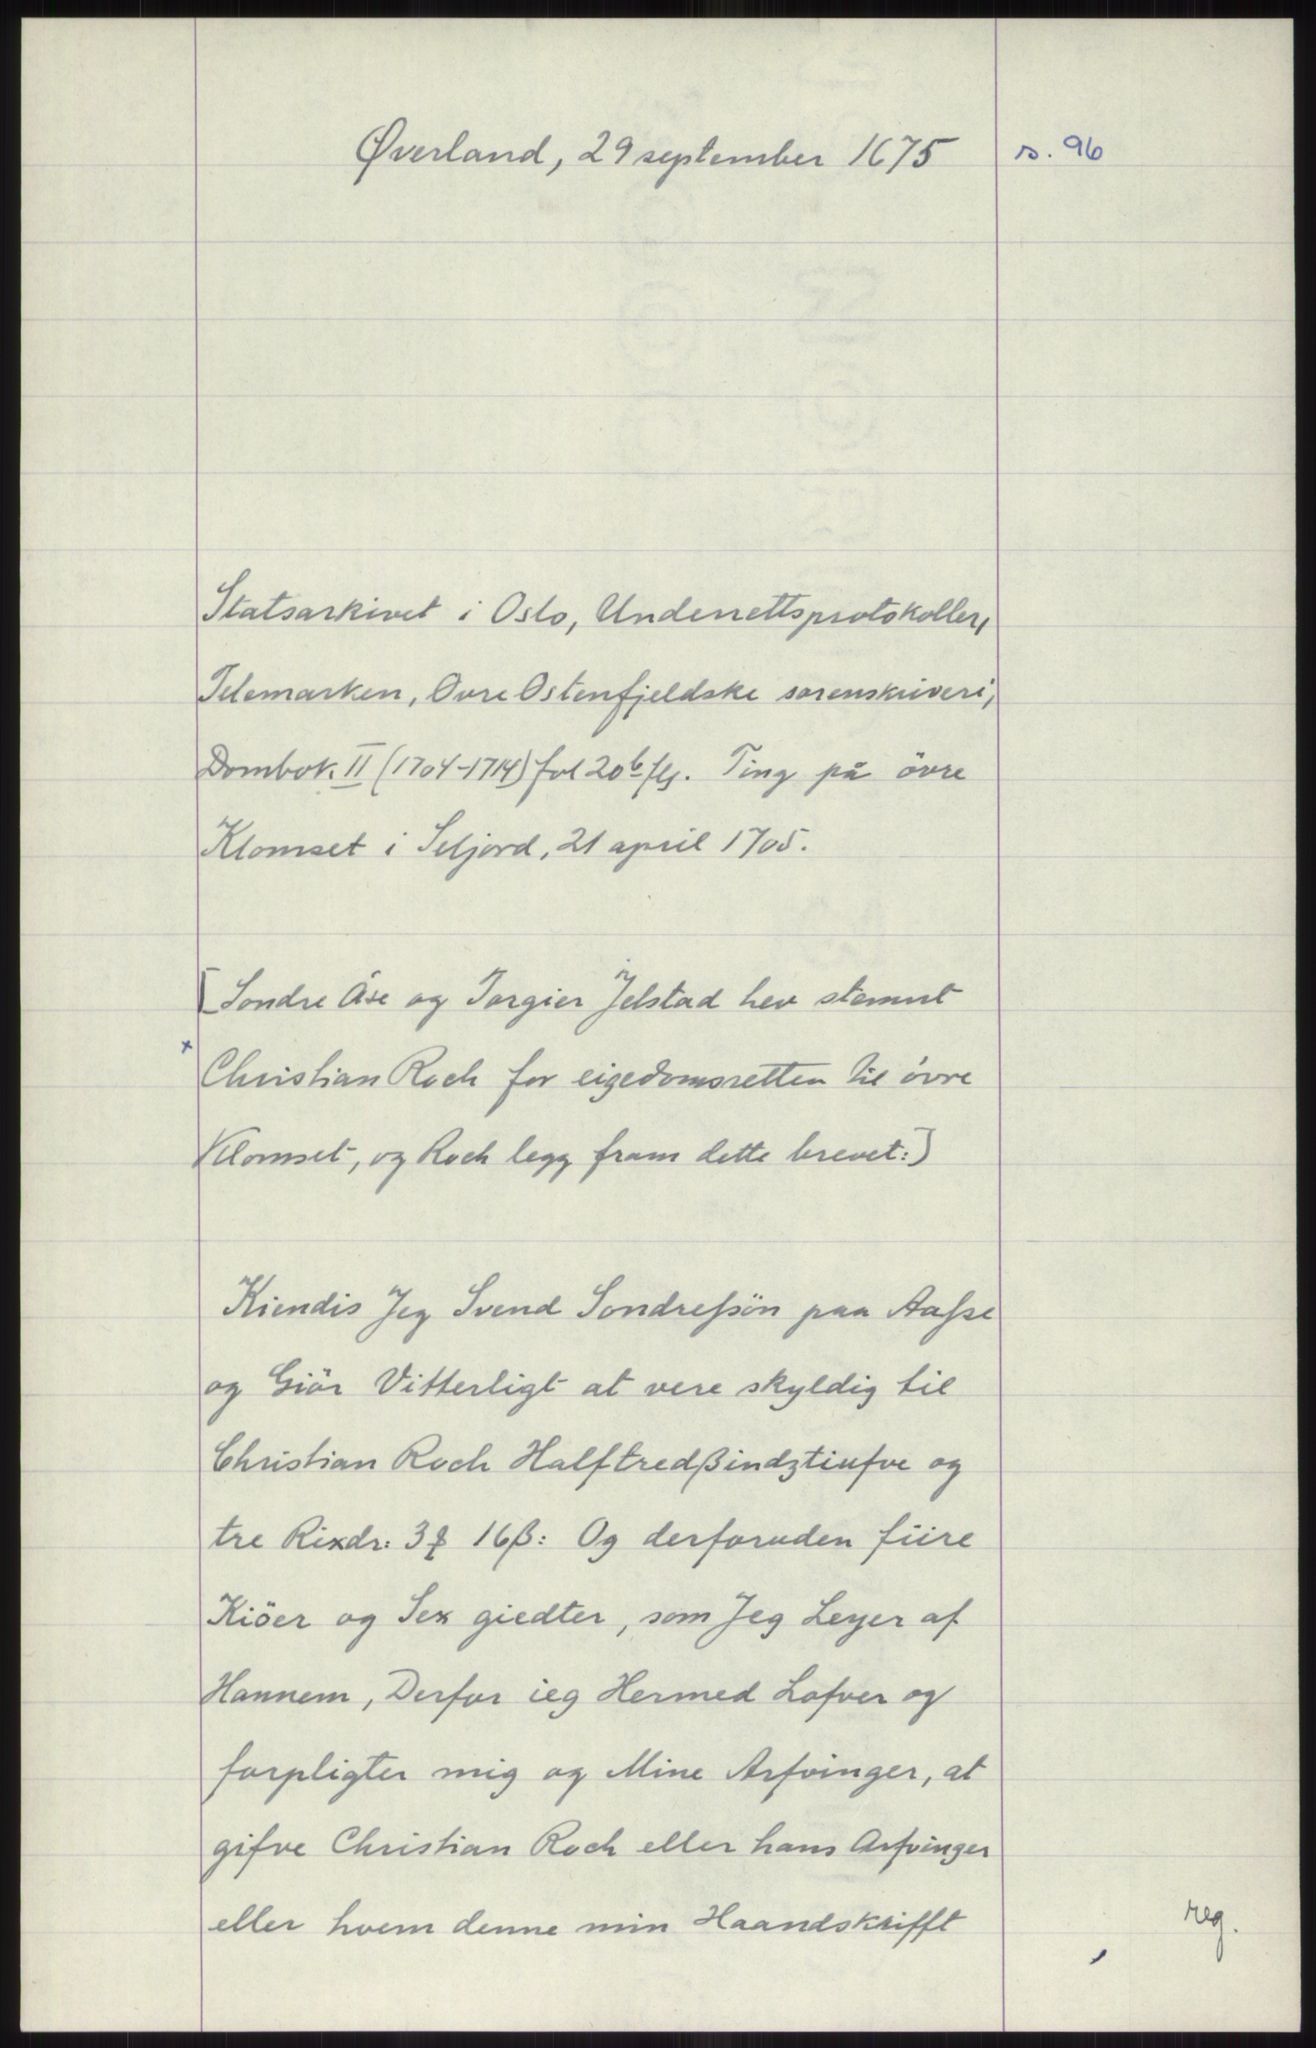 Øverland, 29 september 1675 s. 96
Statsarkivet i Oslo, Underrettsprotokoller,
Telemarken, Övre Östenfjeldske sorenskriveri,
Dombok II (1704-1714) fol 20b flg. Ting på övre
Klomset i Seljord, 21 april 1705.
[Sondre Åse og Torgier Jelstad hev stemnt
x
Christian Roch for eigedomsretten til övre
Klomset, og Roch legg fram dette brevet:]
Kiendis Jeg Svend Sondreßön paa Aasse
og Giör Vitterligt at vere skyldig til
Christian Roch Halftredßindztiufve og
tre Rixdr: 3 16β: Og derforuden fiire
Kiöer og Sex giedter, som Jeg Leyer af
Hannem, Derfor ieg Hermed Lofver og
forpligter mig og Mine Arfvinger, at
gifve Christian Roch eller hans Arfvinger
eller hvem denne min Haandskrifft
reg.